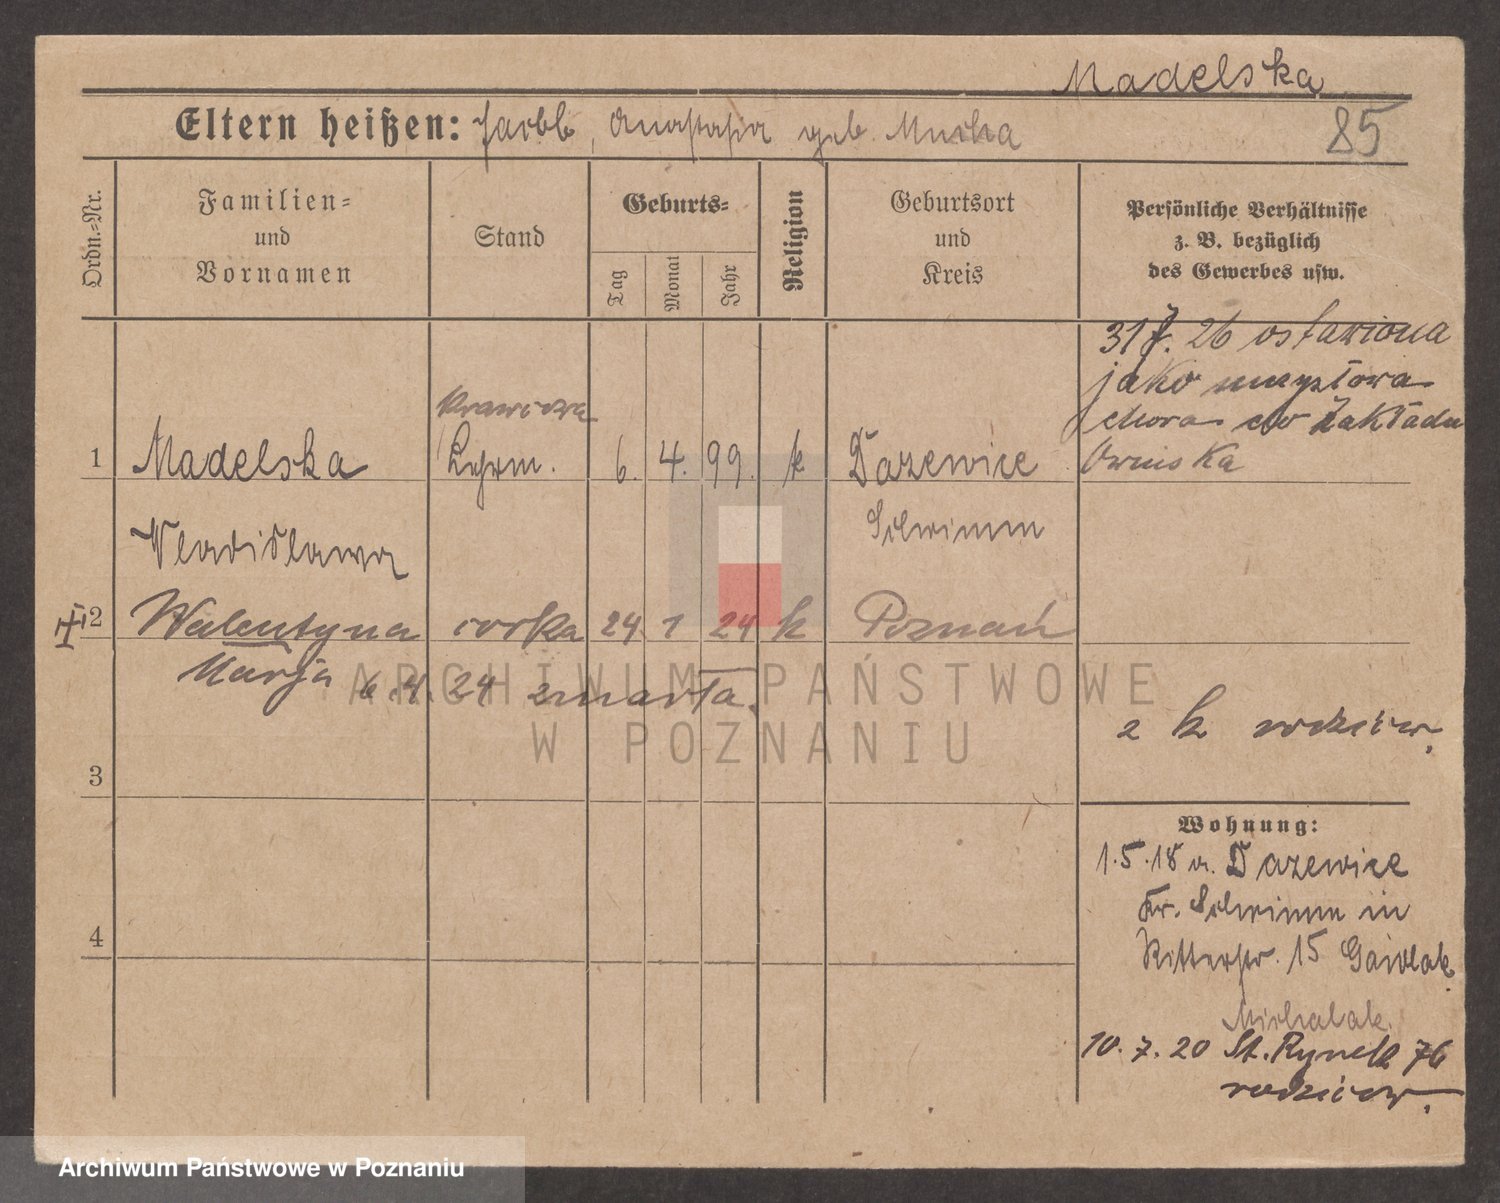 Madelska
Eltern heißen: Jakob, Anastasia geb. Mucha
85
Ordn.=Nr.
Familien=
und
Vornamen
Stand
Geburts=
Tag
Monat
Jahr
Religion
Geburtsort
und
Kreis
Persönliche Verhältnisse
z. B. bezüglich
des Gewerbes usw.
31 7. 26 ostawiona
jako umysłowa
chora do Zakładu
Owinska
krawcowa
1 Madelska Lehrm. 6. 4. 99. k Dazewice
Wladislawa Schrimm
2 Walentyna córka 24 1 24 k Poznań
Marja 6.4. 24 zmarła.
z k rodziców.
3
4
Wohnung:
1.5.18 v. Dazewice
Kr. Schrimm in
Ritterstr. 15 Gawlak.
Michalak.
10.7.20 St. Rynek 76
rodziców.
ARCHIWUM PAŃSTWOWE
W POZNANIU
Archiwum Państwowe w Poznaniu